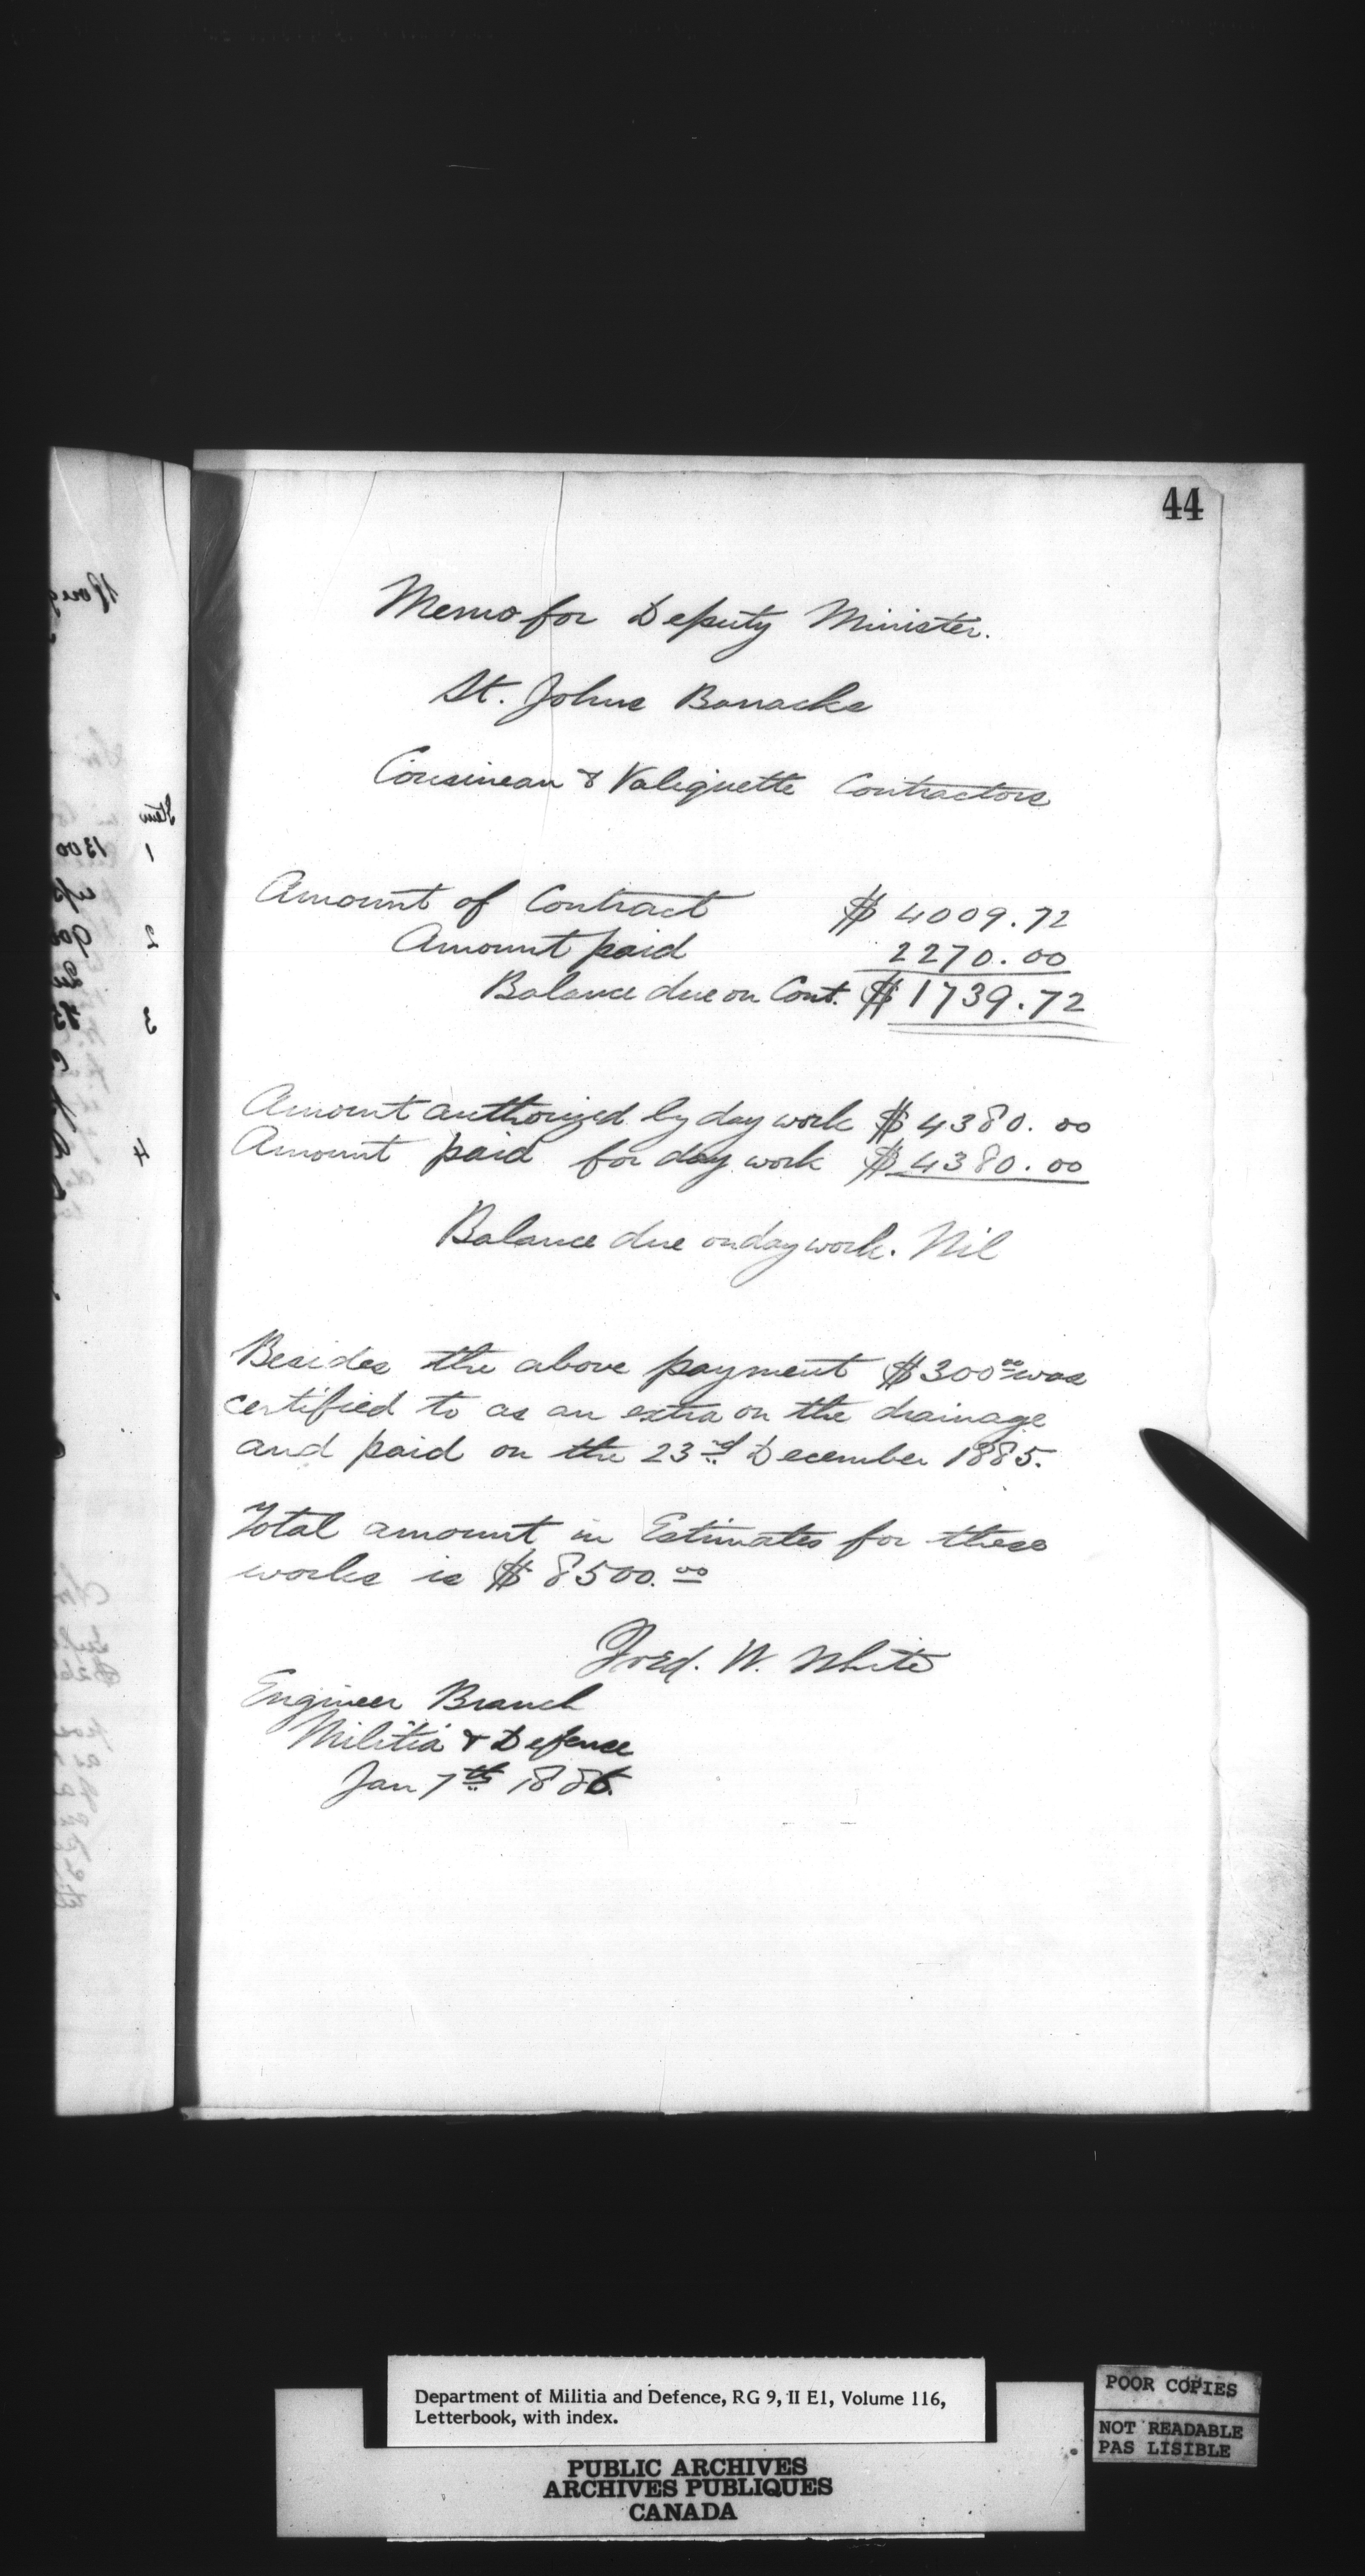 44
Memo for Deputy Minister.
St. Johns Barracks
Cousineau & Valiquette Contractors
Amount of Contract $ 4009.72
Amount paid 2270.00
Balance due on Cont. $ 1739.72
Amount authorized by day work $ 4380.00
Amount paid for day work $ 4380.00
Balance due on day work. Nil
Besides the above payment $300.00 was
certified to as an extra on the drainage
and paid on the 23rd December 1885.
Total amount in Estimates for these
works is $ 8500.00
Fred. W. White
Engineer Branch
Militia & Defence
Jan 7th 1886.
Item
1 1300
2
3
4
Department of Militia and Defence, RG 9, II E1, Volume 116,
Letterbook, with index.
PUBLIC ARCHIVES
ARCHIVES PUBLIQUES
CANADA
POOR COPIES
NOT READABLE
PAS LISIBLE